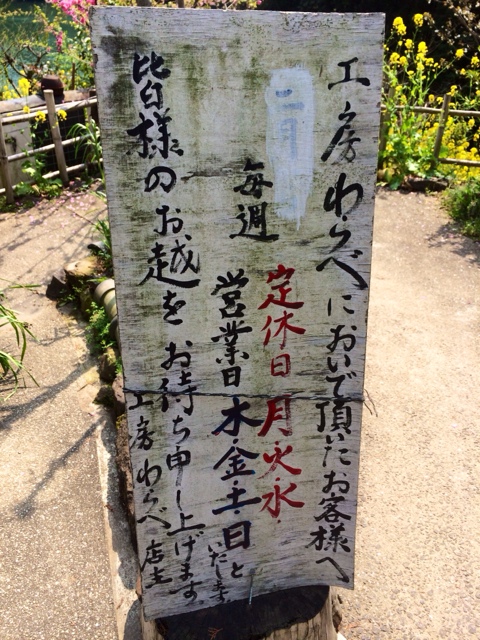 工房わらべにおいで頂いたお客様へ
二月
毎週
定休日 月・火・水・
営業日 木・金・土・日と
いたします
皆様のお越をお待ち申し上げます。
工房わらべ 店主